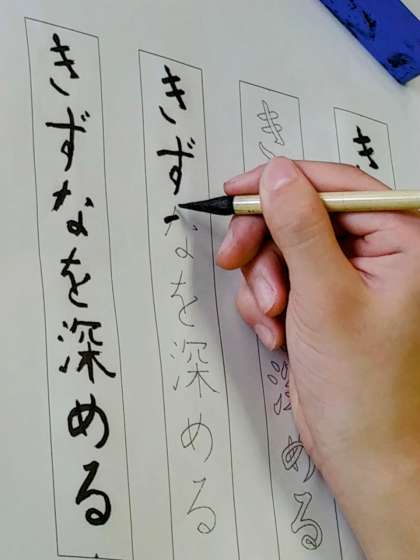 き
き深める
きずなを深める
きずなを深める